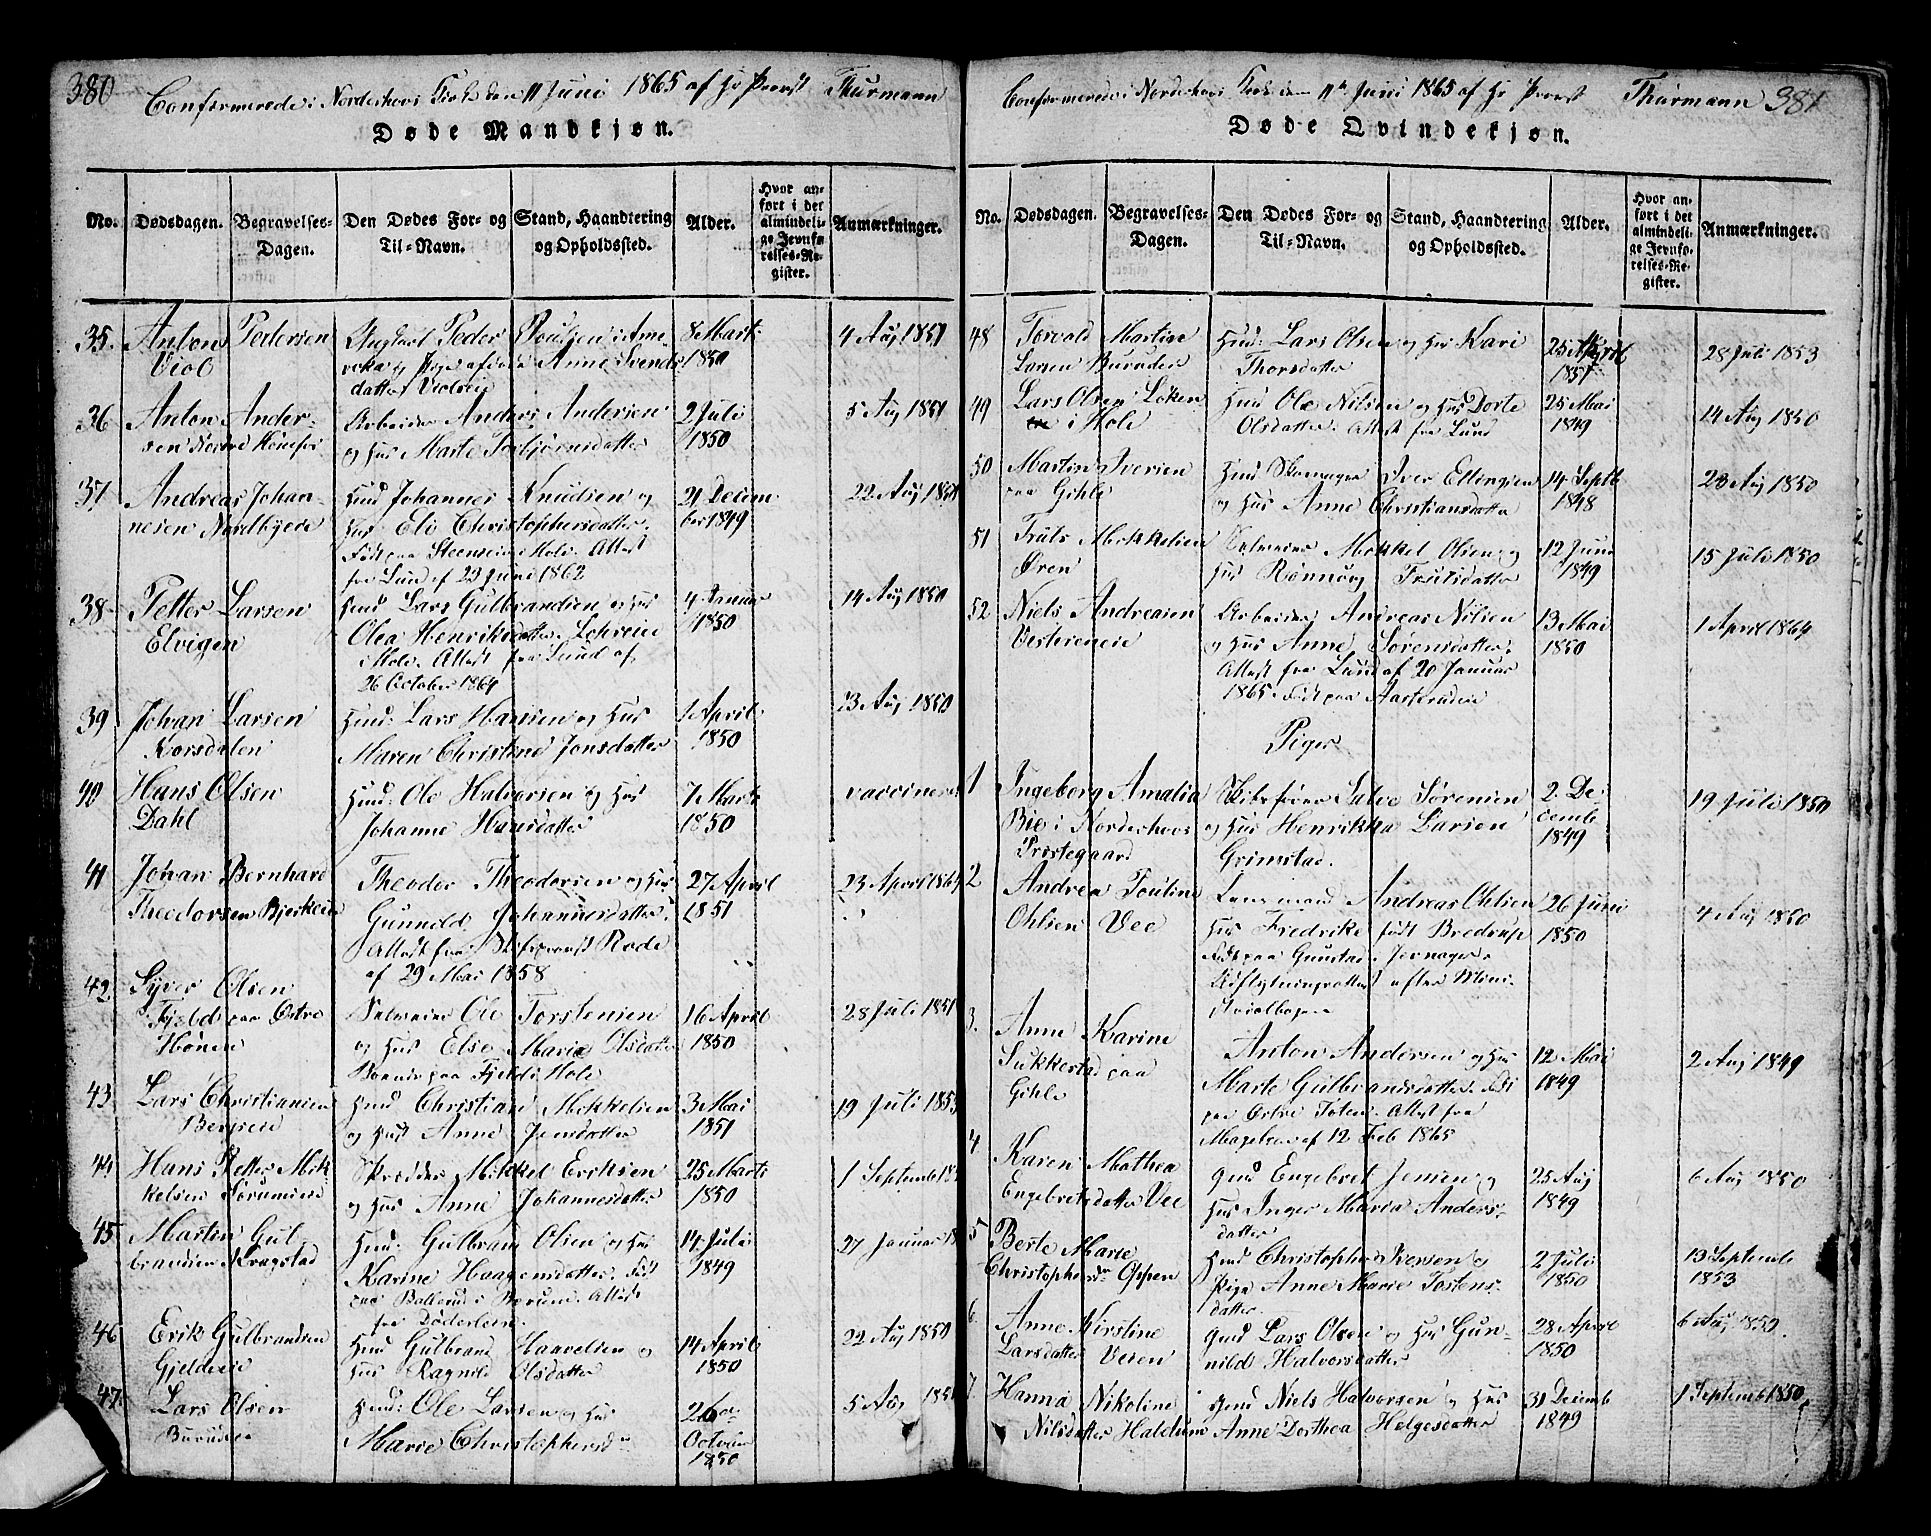 380
Confirmerede i Norderhovs Kirke den 11 Juni 1865 af Hr Provst Thurmann
Døde Mandkjøn.
No.
Dødsdagen.
Begravelses-
Dagen.
Den Dødes For- og
Til-Navn.
Stand, Haandtering
og Opholdssted.
Alder.
Hvor an-
ført i det
almindeli-
ge Jevnfø-
relses-Re-
gister.
Anmærkninger.
35. Anton Pedersen
Viol
Peder Poulsen i Ame
rika og Pige Anne Svends
datter Violseie
8 Marts
1850
4 Aug 1851
36 Anton Ander-
sen Nordre Hønefos
Arbeider Anders Andersen
og Hus Marte Torbjørnsdatter
2 Juli
1850
5 Aug 1851
37 Andreas Johan-
nesen Nordbyeie
Huud Johannes Knudsen og
Hus Eli Christophersdatter.
Født paa Steenseie i Hole. Attest
fra Lund af 23 Juni 1862
21 Decem
ber 1849
22 Aug 1851
38 Petter Larsen
Elvigen
Huud Lars Gulbrandsen og Hus
Olea Henriksdatter
i Hole. Attest fra Lund af
26 October 1864
4 Januar
1850
14 Aug 1850
39 Johan Larsen
Korsdalen
Huud: Lars Hansen og Hus
Maren Christine Jonsdatter
1 April
1850
13 Aug 1850
40 Hans Olsen
Dahl
Huud: Ole Halvorsen og Hus
Johanne Hansdatter
7 Marts
1850
vaccineret
41 Johan Bernhard
Theodorsen Bjerkeeie
Theodor Theodorsen og Hus
Gunnild Johannesdatter
Attest fra Skibsprovst Rode
af 29 Mai 1858
27 April
1851
23 April 1864
42. Syver Olsen
Fjeld paa Østre
Hønen
Selveier Ole Torstensen
og Hus Else Marie Olsdatter
Boende paa Fjeld i Hole
16 April
1850
28 Juli 1851
43. Lars Christiansen
Bergseie
Huud Christian Mikkelsen
og Hus Anne Jensdatter
3 Mai
1851
19 Juli 1853
44. Hans Petter Mik
kelsen Sørumseie
Skrædder Mikkel Eriksen
og Hus Anne Johannesdatter
25 Marts
1850
1 Septemb
45 Martin Gul
brandsen Kragstad
Huud: Gulbrand Olsen og Hus
Karine Haagensdatter. Født
paa Ballerud i Bærum. Attest
fra Døderlein.
14 Juli
1849
27 Januar
46 Erik Gulbrandsen
Gjeldeeie
Huud Gulbrand Haavelsen og
Hus Ragnild Olsdatter
14 April
1850
22 Aug 1850
47. Lars Olsen
Burudeie
Huud: Ole Larsen og Hus
Marie Christophersd
26de
October
1850
5 Aug
381
Confirmerede i Norderhovs Kirke den 11te Juni 1865 af Hr Provst Thurmann
Døde Qvindekjøn.
No.
Dødsdagen.
Begravelses-
Dagen.
Den Dødes For- og
Til-Navn.
Stand, Haandtering
og Opholdssted.
Alder.
Hvor an-
ført i det
almindeli-
ge Jevnfø-
relses-Re-
gister.
Anmærkninger.
48 Torvald Martin
Larsen Burudeie
Huud: Lars Olsen og Hus Kari
Thorsdatter
25 April
1851
28 Juli 1853
49 Lars Olsen Løken
i Hole
Huud Ole Nilsen og Hus Dorte
Olsdatter. Attest fra Lund
25 Mai
1849
14 Aug 1850
50 Martin Iversen
paa Gihle
Huud Skomager Iver Ellingsen
og Hus Anne Christiansdatter
14 Septb
1848
23 Aug 1850
51 Truls Mikkelsen
Øren
Selveier Mikkel Olsen og
Hus Rønnøug Trulsdatter
12 Juni
1849
15 Juli 1850
52 Niels Andreasen
Vesterneie
Arbeider Andreas Nilsen
og Hus Anne Sørensdatter.
Attest fra Lund af 20 Januar
1865. Født paa
13 Mai
1850
1 April 1864
Piger
1 Ingeborg Amalia
Bie i Norderhovs
Præstegaard
Skibsfører Salve Sørensen
og Hus Henrikka Larsen
Grimstad.
2 De
cemb
1849
19 Juli 1850
2 Andrea Pouline
Ohlsen Vee
Lensmand Andreas Ohlsen
Hus Fredrike født Bredrup
Født paa Guustad. Jevnager.
Udflytningsattest efter Mini-
sterialbogen
26 Juni
1850
4 Aug 1850
3. Anne Karine
Sukkestad paa
Gihle
Anton Andersen og Hus
Marte Gulbrandsdatter. Født
paa Østre Toten. Attest fra
af 12 Feb 1865
12 Mai
1849
2 Aug 1849
4 Karen Mathea
Engebretsdatter Vee
Huud Engebret Jensen og
Hus Inger Maria Anders-
datter
25 Aug
1849
6 Aug 1850
5 Berte Marie
Christophersdr Oppen
Huud Christopher Iversen og
Pige Anne Marie Tostens-
datter
2 Juli
1850
13 Septemb
1853
6. Anne Kirstine
Larsdatter Veien
Huud Lars Olsen og Hus Gun-
nild Halvorsdatter
28 April
1850
6 Aug 1850.
7. Hanna Nikoline
Nilsdatter Haldum
Huud Niels Halvorsen og Hus
Anne Dorthea Helgesdatter
31 Decemb
1849
1 Septemb 1850